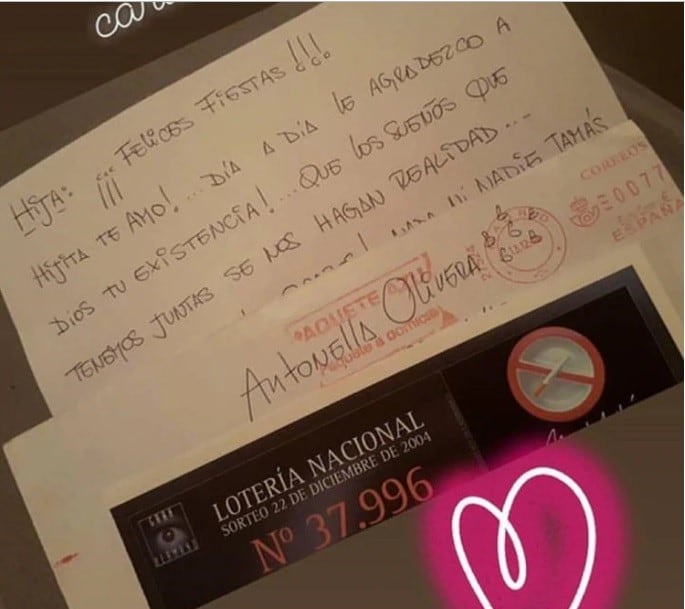 HIJA: ¡¡¡ FELICES FIESTAS!!!
HIJITA TE AMO!... DÍA A DÍA LE AGRADEZCO A
DIOS TU EXISTENCIA!... QUE LOS SUEÑOS QUE
TENEMOS JUNTAS SE NOS HAGAN REALIDAD...
NADIE JAMÁS
CORREOS
€0077
ESPAÑA
PAQUETE AZUL
Paquete a domicilio
Antonella Olivera
LOTERÍA NACIONAL
SORTEO 22 DE DICIEMBRE DE 2004
Nº 37.996
GRAN
HERMANO